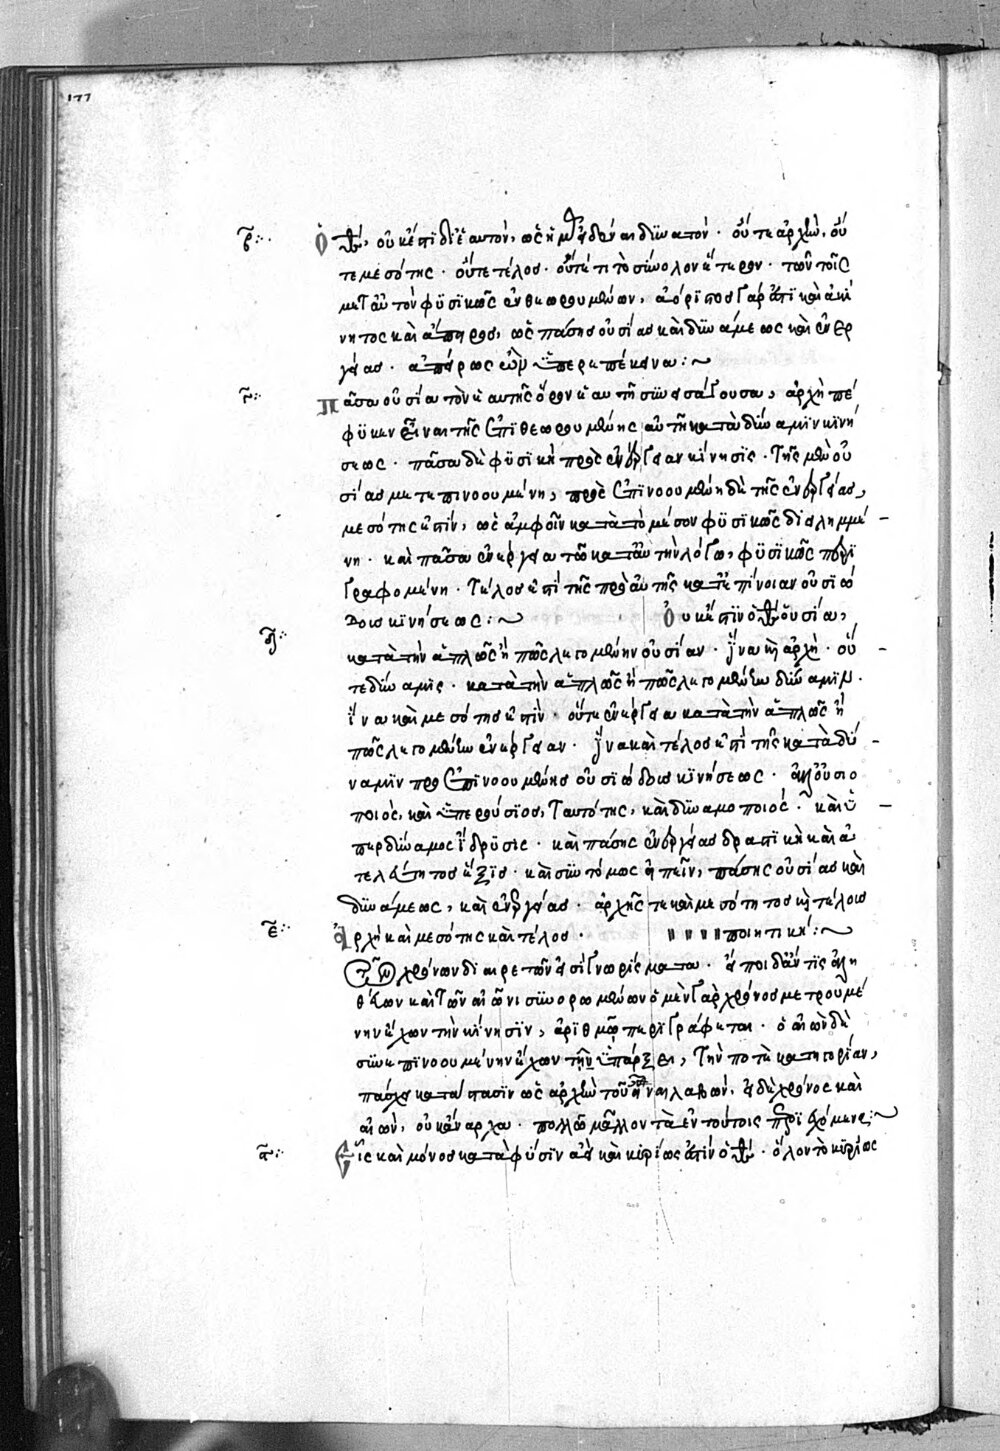 177
β Ὁ θς, οὐκ ἔστι δι' ἑαυτὸν, ὡς ἡμᾶς εἰδέναι δυνατόν. οὔτε ἀρχὴ, οὔ
τε μεσότης. οὔτε τέλος. οὔτέ τι τὸ σύνολον ἕτερον. τῶν τοῖς
μετ' αὐτὸν φυσικῶς ἐνθεωρουμένων, ἀόριστος γάρ ἐστι καὶ ἀκί
νητος καὶ ἄπειρος, ὡς πάσης οὐσίας καὶ δυνάμεως καὶ ἐνερ
γείας. ἀπείρως ὢν ὑπερεπέκεινα :~
γ Πᾶσα οὐσία τὸν ἑαυτῆς ὅρον ἑαυτῇ συνεισάγουσα, ἀρχὴ πέ
φυκεν εἶναι τῆς ἐπιθεωρουμένης αὐτῇ κατὰ δύναμιν κινή
σεως. πᾶσα δὲ φυσικὴ πρὸς ἐνέργειαν κίνησις. τῆς μὲν οὐ
σίας μετεπινοουμένη, προεπινοουμένη δὲ τῆς ἐνεργείας,
μεσότης ἐστὶν, ὡς ἀμφοῖν κατὰ τὸ μέσον φυσικῶς διειλημμέ
νη. καὶ πᾶσα ἐνέργεια τῷ κατ' αὐτὴν λόγῳ, φυσικῶς περι
γραφομένη. τέλος ἐστὶ τῆς πρὸ αὐτῆς κατ' ἐπίνοιαν οὐσιώ
δους κινήσεως :~ Οὐκ ἔστιν ὁ θς οὐσία,
δ κατὰ τὴν ἁπλῶς ἤ πως λεγομένην οὐσίαν. ἵνα καὶ ἀρχή. οὔ
τε δύναμις. κατὰ τὴν ἁπλῶς ἤ πως λεγομένην δύναμιν.
ἵνα καὶ μεσότης ἐστὶν. οὔτε ἐνέργεια κατὰ τὴν ἁπλῶς ἤ
πως λεγομένην ἐνέργειαν. ἵνα καὶ τέλος ἐστὶ τῆς κατὰ δύ
ναμιν προεπινοουμένης οὐσιώδους κινήσεως. ἀλλ' οὐσιο
ποιός, καὶ ὑπερούσιος, ταυτότης, καὶ δυναμοποιός. καὶ ὑ
περδύναμος ἵδρυσις. καὶ πάσης ἐνεργείας δραστικὴ καὶ ἀ
τελεύτητος ἕξις. καὶ συντόμως εἰπεῖν, πάσης οὐσίας καὶ
δυνάμεως, καὶ ἐνεργείας. ἀρχῆς τε καὶ μεσότητος καὶ τέλους
ε Ἀρχὴ καὶ μεσότης καὶ τέλος. ποιητική :~
τῶν χρόνων διαιρετῶν εἰσὶ γνωρίσματα. εἴποι δ' ἄν τις ἀλη
θεύων καὶ τῶν αἰῶνι συνορωμένων ὁ μὲν γὰρ χρόνος μετρουμέ
νην ἔχων τὴν κίνησιν, ἀριθμῷ περιγράφεται. ὁ αἰὼν δὲ
συνεπινοουμένην ἔχων τῇ ὑπάρξει, τὴν ποτὲ κατηγορίαν,
πάσχει κατάστασιν ὡς ἀρχὴν τοῦ εἶναι λαβών, εἰ δὲ χρόνος καὶ
αἰὼν, οὐκ ἄναρχα. πολλῷ μᾶλλον τὰ ἐν τούτοις περιεχόμενα :~
Εἷς καὶ μόνος κατὰ φύσιν ἀεὶ καὶ κυρίως ἐστὶν ὁ θς. ὅλον τὸ κυρίως